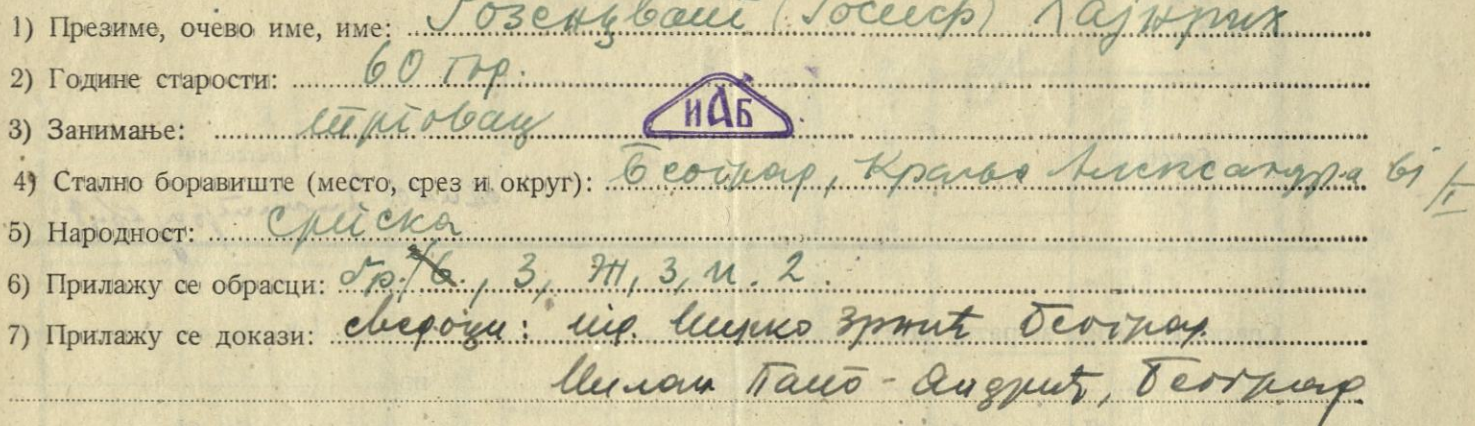 1) Презиме, очево име, име: Розенцваиг (Јосиф) Хајнрих
2) Године старости: 60 год.
ИАБ
3) Занимање: трговац
4) Стално боравиште (место, срез и округ): Београд, Краља Александра 61/I
5) Народност: српска
6) Прилажу се обрасци: бр. , 3, Ж, 3, и. 2.
7) Прилажу се докази: сведоци: Мирко Зрнић Београд
Милан Папо-Андрић, Београд